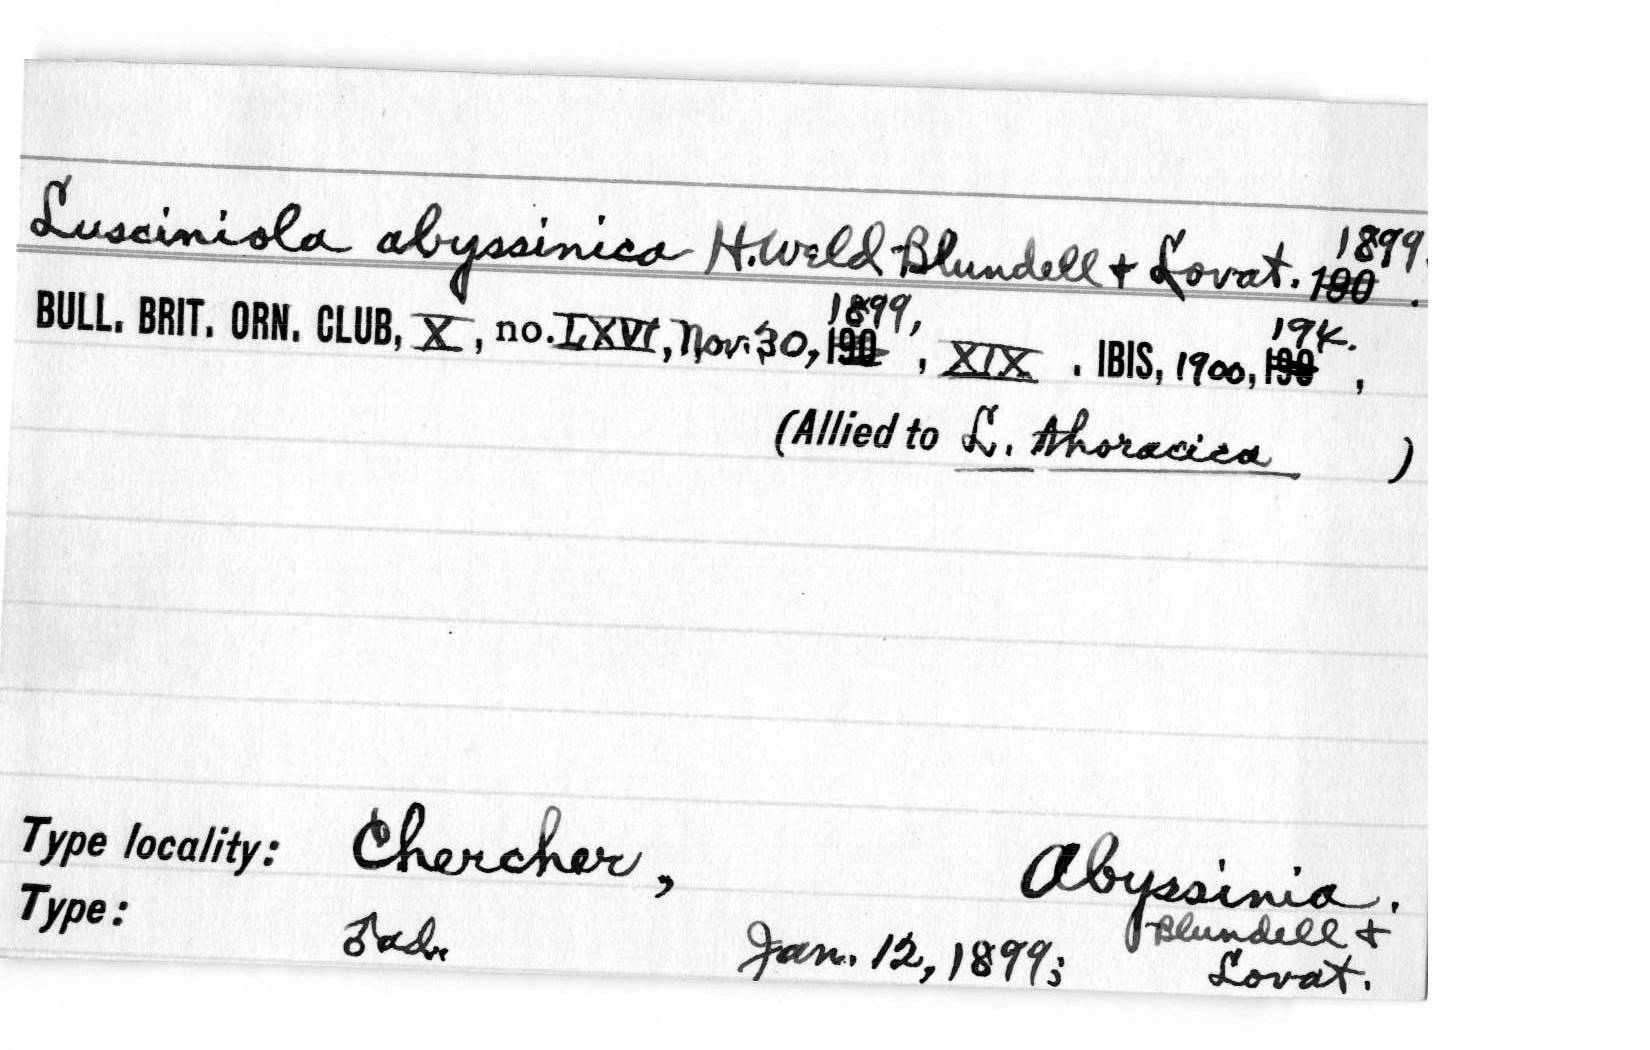 Lusciniola abyssinica H. Weld Blundell + Lovat. 1899.
BULL. BRIT. ORN. CLUB, X, no. LXVI, Nov. 30, 1899, XIX. IBIS, 1900, 194.,
(Allied to L. thoracica )
Type locality: Chercher, Abyssinia.
Type: ad. Jan. 12, 1899; Blundell +
Lovat.